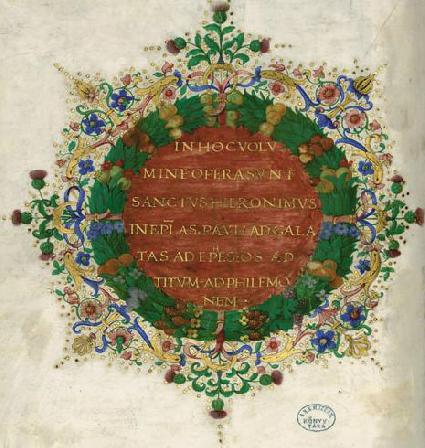 IN HOC VOLV
MINE OPERA SVNT
SANCTVS HIERONIMVS
IN EPLAS. PAVLI AD GALA
TAS AD EPHESIOS AD
TITVM AD PHILEMO
NEM
KÖNYV
TÁRA